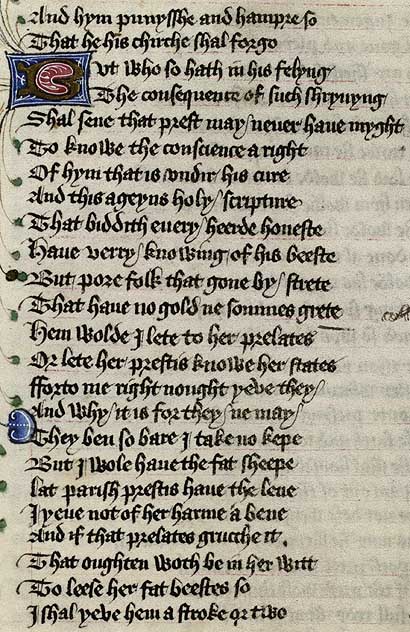 And hym punysshe and hampre so
That he his chirche shal forgo
But who so hath in his felyng
The consequence of such shryuyng
Shal sene that prest may neuer haue myght
To knowe the conscience a right
Of hym that is vndir his cure
And this ageyns holy scripture
That biddith euery heerde honeste
Haue verry knowing of his beeste
But pore folk that gone by strete
That haue no gold ne sommes grete
Hem wolde I lete to her prelates
Or lete her prestis knowe her states
fforto me right nought yeve they
And why it is for they ne may
They ben so bare I take no kepe
But I wole haue the fat sheepe
Lat parish prestis haue the lene
I yeue not of her harme a bene
And if that prelates grucche it
That oughten woth be in her witt
To leese her fat beestes so
I shal yeve hem a stroke or two